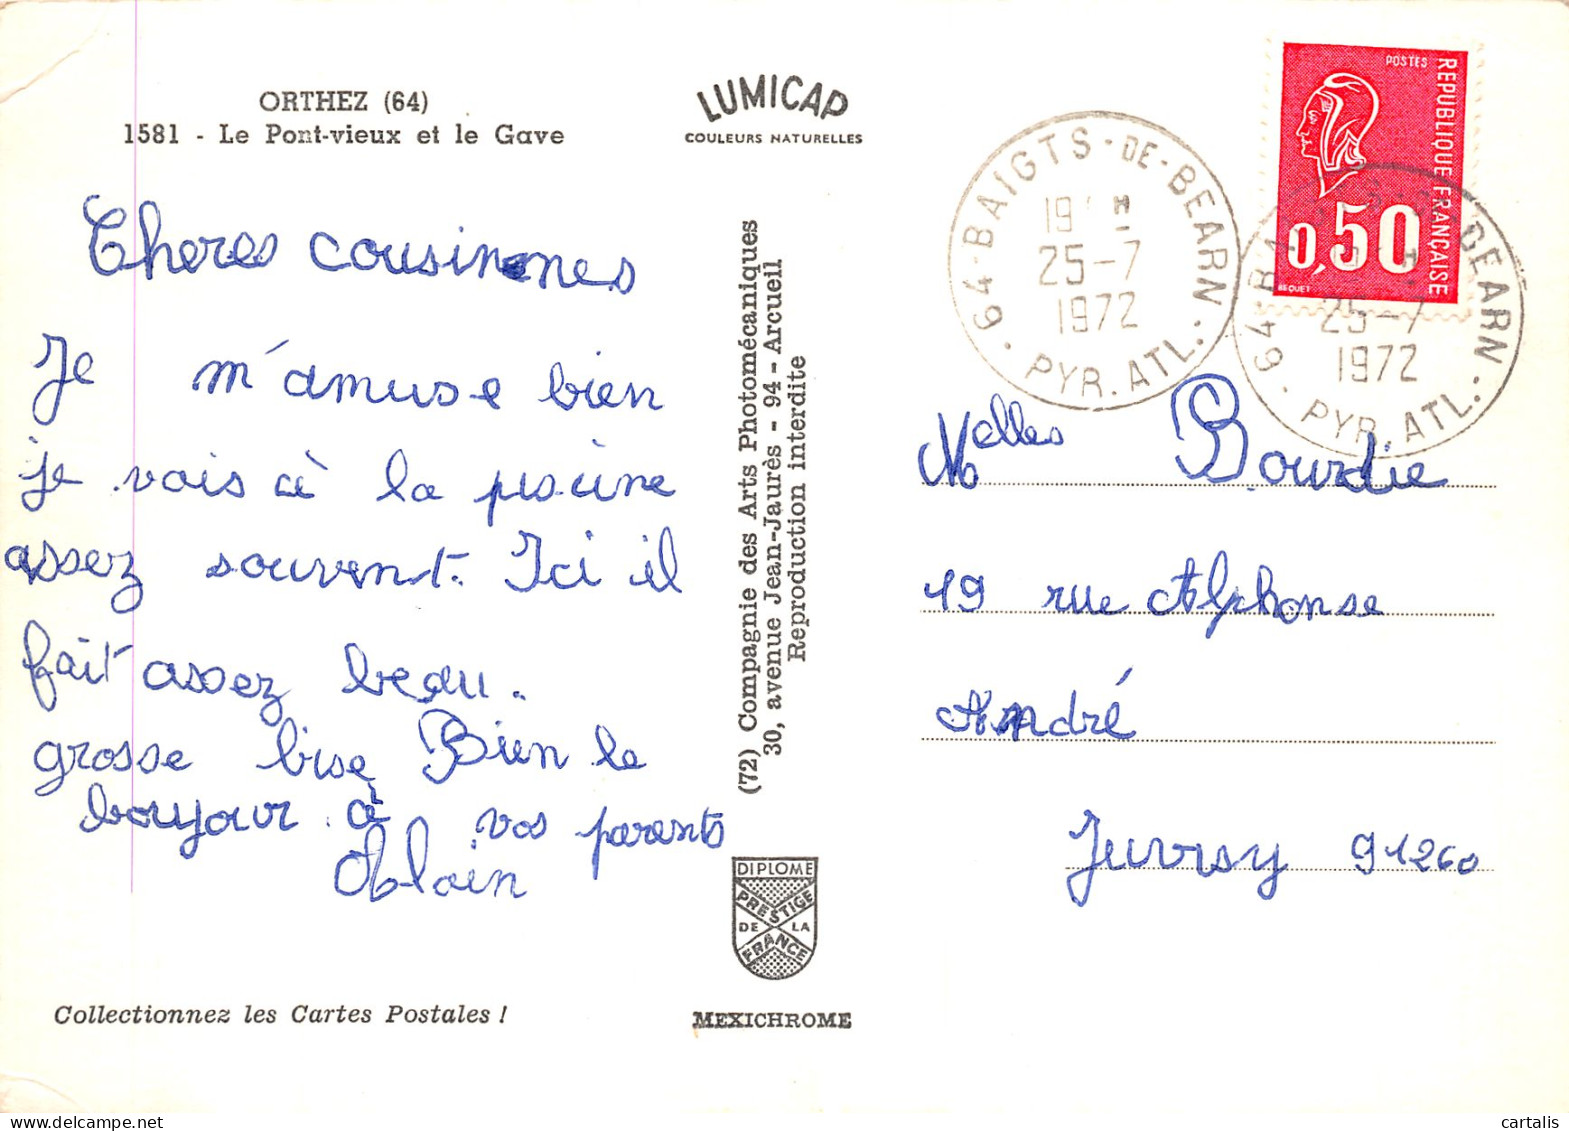 ORTHEZ (64)
1581 - Le Pont-vieux et le Gave
LUMICAP
COULEURS NATURELLES
Cheres cousinnes
Je m'amuse bien
je vais à la piscine
assez souvent. Ici il
fait assez beau.
grosse bise Bien le
bonjour à vos parents
Alain
Collectionnez les Cartes Postales !
(72) Compagnie des Arts Photomécaniques
30, avenue Jean-Jaurès - 94 - Arcueil
Reproduction interdite
DIPLOME
PRESTIGE
DE LA
FRANCE
MEXICHROME
64 - BAIGTS - DE - BEARN
25-7
1972
PYR. ATL.
POSTES
REPUBLIQUE FRANÇAISE
0,50
BEQUET
DEARN
25-7
1972
64
PYR. ATL.
Melles Bourdie
19 rue Alphonse
André
Juvisy 91260
cartalis